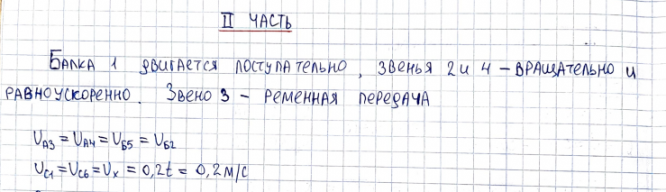 II ЧАСТЬ
БАЛКА 1 ДВИГАЕТСЯ ПОСТУПАТЕЛЬНО, ЗВЕНЬЯ 2 и 4 – ВРАЩАТЕЛЬНО и
РАВНОУСКОРЕННО. ЗВЕНО 3 – РЕМЕННАЯ ПЕРЕДАЧА
U_A3 = U_A4 = U_Б5 = U_Б2
U_C1 = U_C6 = U_x = 0,2t = 0,2 м/с